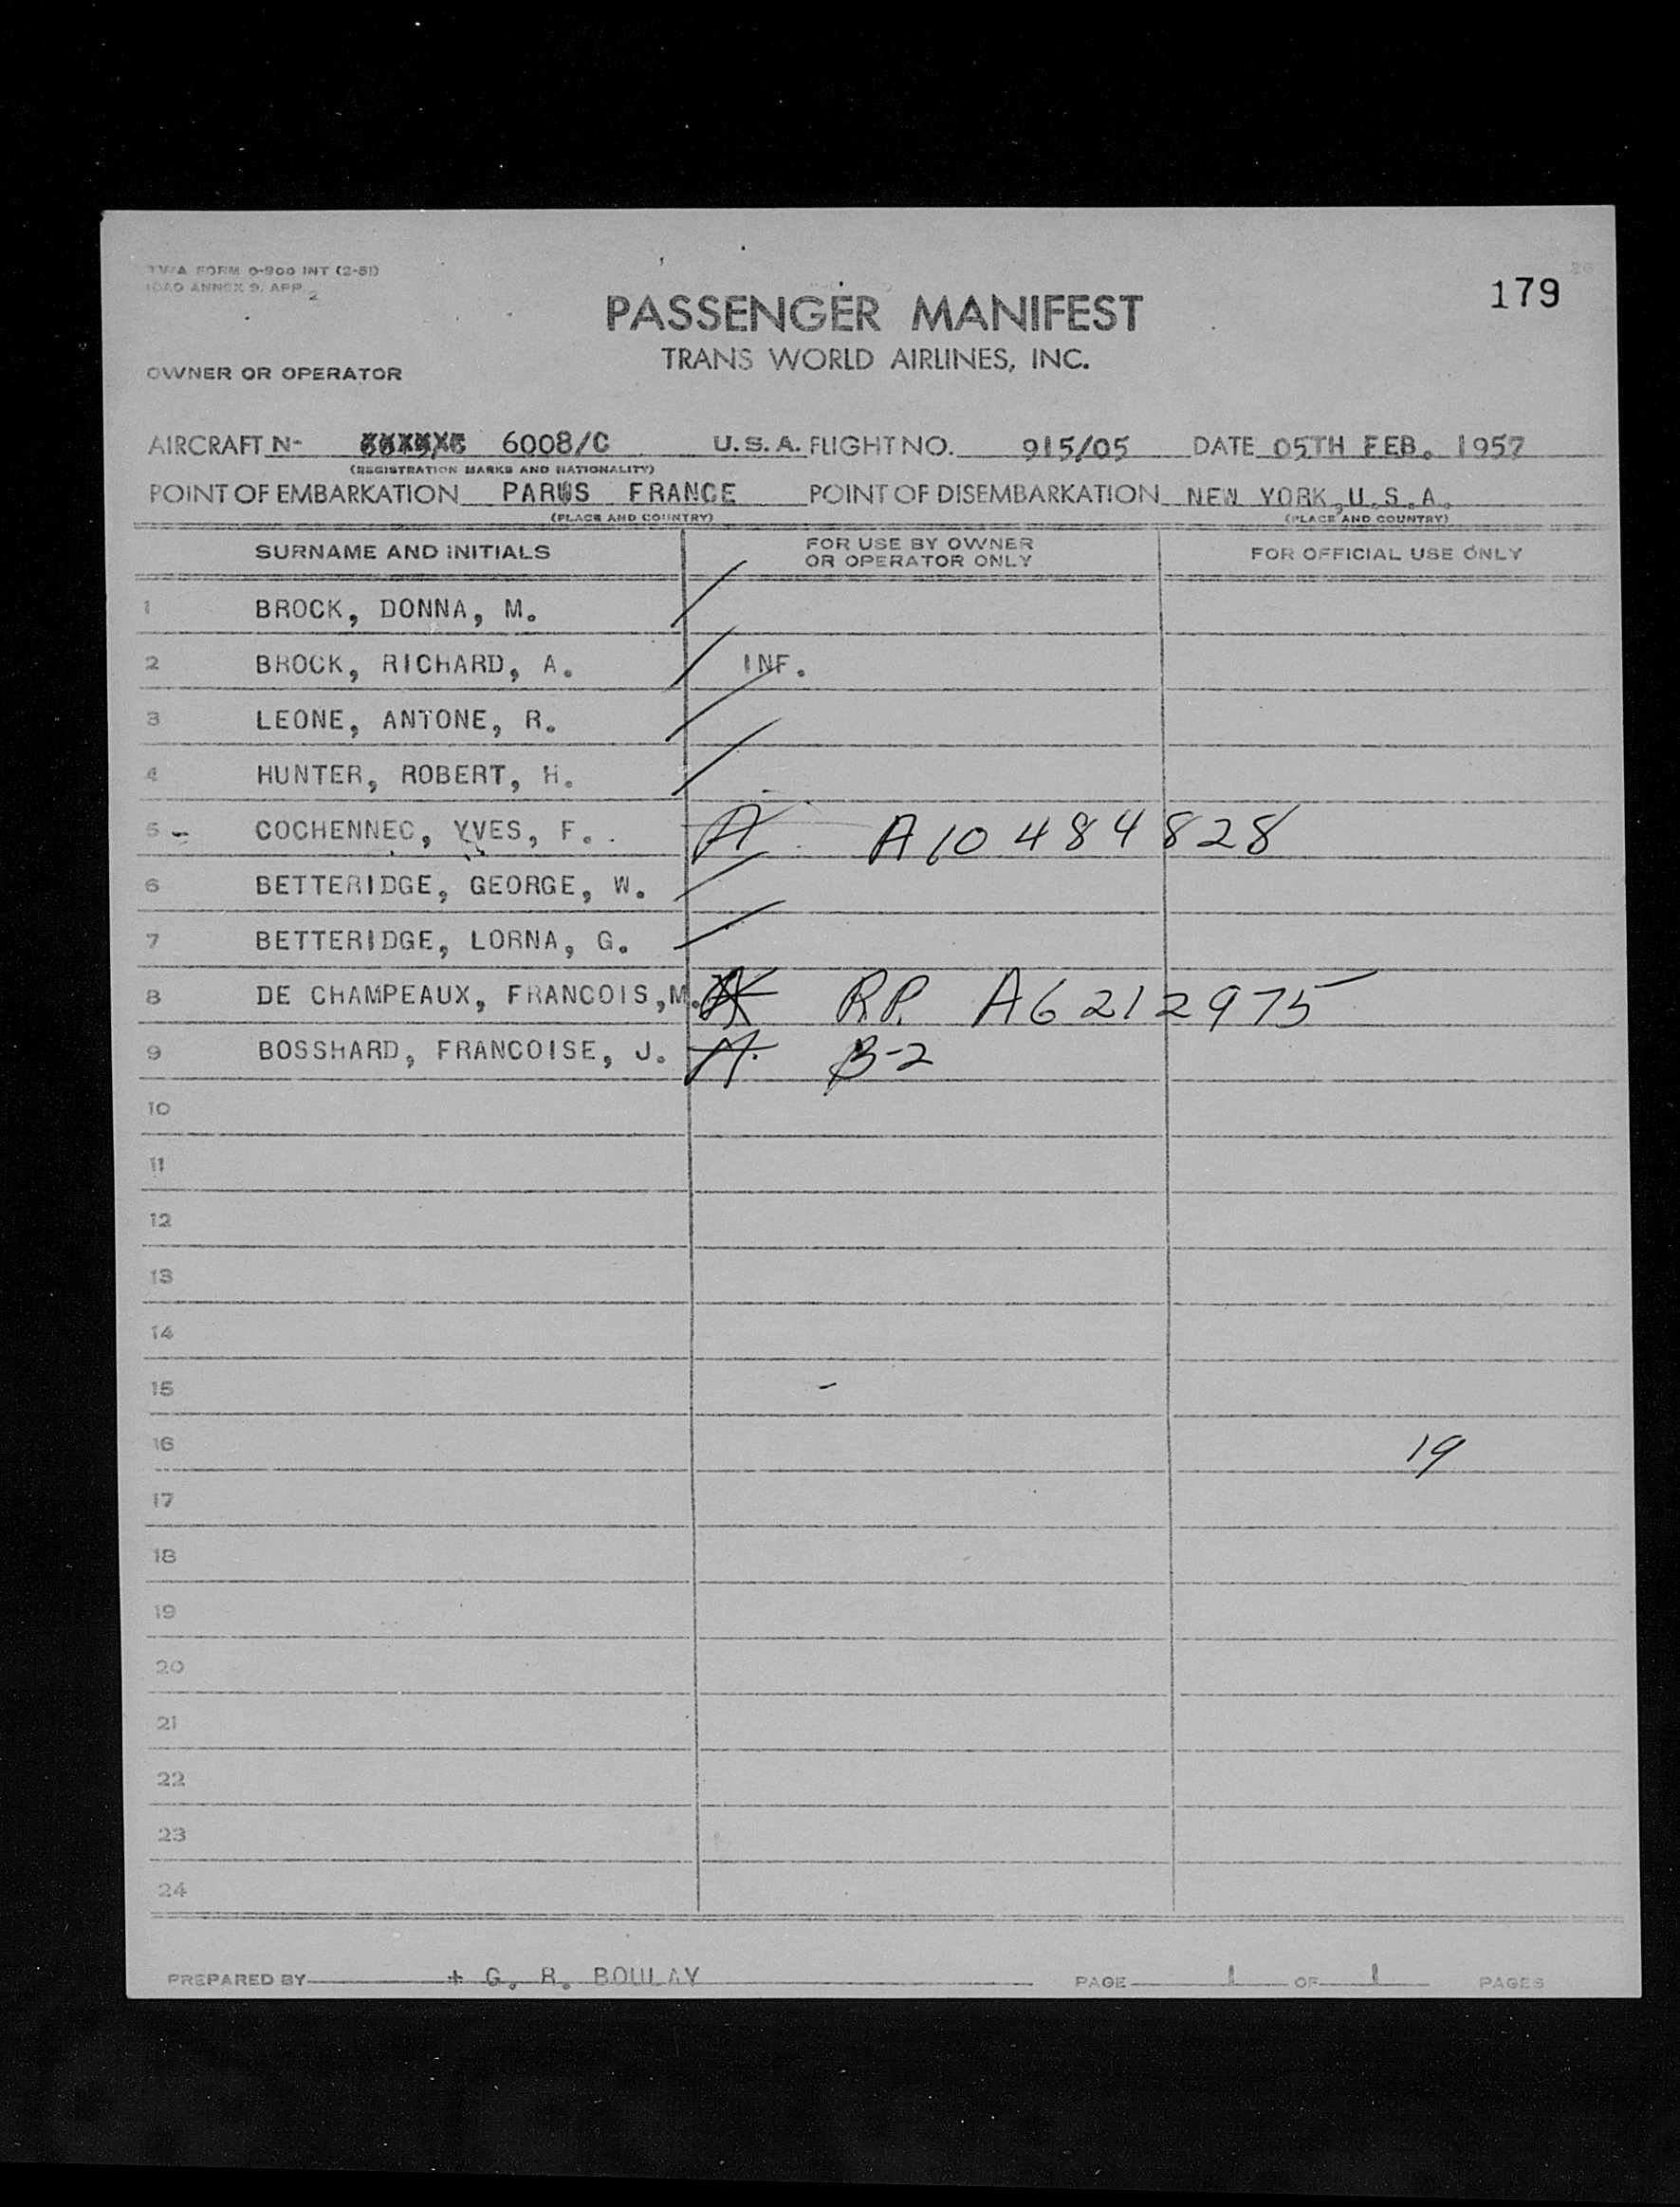 TWA FORM 0-900 INT (2-51)
ICAO ANNEX 9, APP. 2
179
PASSENGER MANIFEST
TRANS WORLD AIRLINES, INC.
OWNER OR OPERATOR
AIRCRAFT N- 6008/C U.S.A. FLIGHT NO. 915/05 DATE 05TH FEB. 1957
(REGISTRATION MARKS AND NATIONALITY)
POINT OF EMBARKATION PARIS FRANCE POINT OF DISEMBARKATION NEW YORK, U.S.A.
(PLACE AND COUNTRY) (PLACE AND COUNTRY)
SURNAME AND INITIALS FOR USE BY OWNER OR OPERATOR ONLY FOR OFFICIAL USE ONLY
1 BROCK, DONNA, M.
2 BROCK, RICHARD, A. INF.
3 LEONE, ANTONE, R.
4 HUNTER, ROBERT, H.
5 - COCHENNEC, YVES, F. A A10 484 828
6 BETTERIDGE, GEORGE, W.
7 BETTERIDGE, LORNA, G.
8 DE CHAMPEAUX, FRANCOIS,M. A R.P. A6 212 975
9 BOSSHARD, FRANCOISE, J. A. B-2
10
11
12
13
14
15
16 19
17
18
19
20
21
22
23
24
PREPARED BY + G. R. BOULAY PAGE 1 OF 1 PAGES